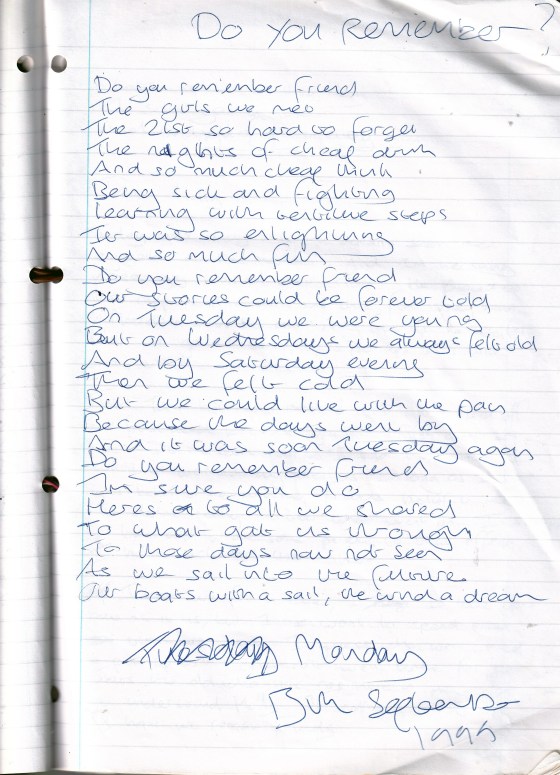 Do You Remember?
Do you remember friend
The girls we met
The 21st so hard to forget
The nights of cheap drink
And so much cheap think
Being sick and fighting
Learning with tentitive steps
It was so enlightning
And so much fun
Do you remember friend
Our stories could be forever told
On Tuesday we were young
But on Wednesdays we always felt old
And by Saturday evening
Then we felt cold
But we could live with the pain
Because the days went by
And it was soon Tuesday again
Do you remember friend
I'm sure you do
Heres to all we shared
To what got us through
To those days now not seen
As we sail into the future
Our boats with a sail, the wind a dream
Tuesday Monday
13th September
1999